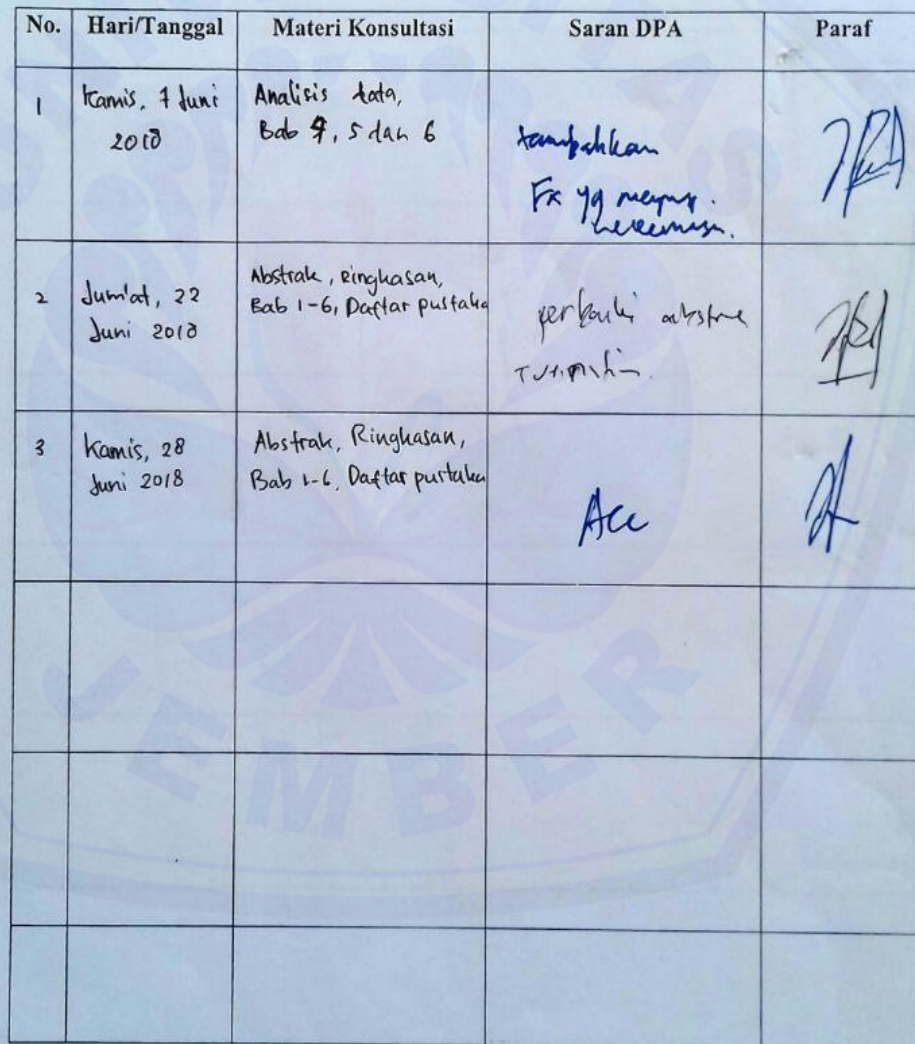 No. Hari/Tanggal Materi Konsultasi Saran DPA Paraf
1 Kamis, 7 Juni Analisis data,
2018 Bab 4, 5 dan 6
tambahkan
Fx yg mempeng.
2 Jum'at, 22 Abstrak, Ringkasan,
Juni 2018 Bab 1-6, Daftar pustaka
perbaiki abstrak
3 Kamis, 28 Abstrak, Ringkasan,
Juni 2018 Bab 1-6, Daftar pustaka
Acc
JEMBER